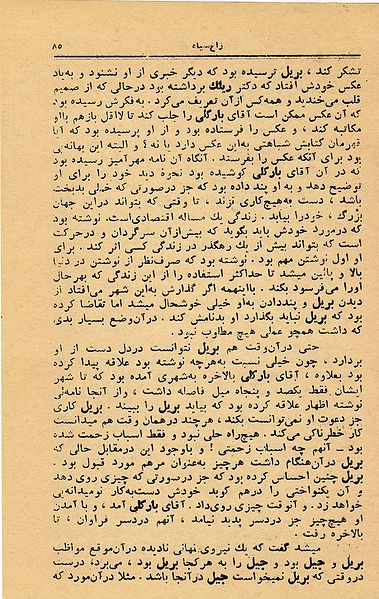 زاغ سیاه ۸۵
تشکر کند ، بریل ترسیده بود که دیگر خبری از او نشنود و به‌یاد
عکس خودش افتاد که دکتر ریلك برداشته بود درحالی که از صمیم
قلب می‌خندید و همه‌کس ازآن تعریف می‌کرد . به‌فکرش رسیده بود
که آن عکس ممکن است آقای بارکلی را جلب کند تا لااقل بازهم بااو
مکاتبه کند ، و عکس را فرستاده بود و از او پرسیده بود که آیا
قهرمان کتابش شباهتی به‌این عکس دارد یا نه ؟ و البته این بهانه‌یی
بود برای آنکه عکس را بفرستد . آنگاه آن نامه مهرآمیز رسیده بود
که در آن آقای بارکلی کوشیده بود نحوهٔ دید خود را برای او
توضیح دهد و به او پند داده بود که جز درصورتی که خیلی بدبخت
باشد ، دست به‌هیچ‌کاری نزند ، تا وقتی که بتواند دراین جهان
بزرگ ، خودرا بیابد . زندگی یك مساله اقتصادی‌است. نوشته بود
که درمورد خودش باید بگوید که بیش‌ازآن سرگردان و درحرکت
است که بتواند بیش از یك رهگذر در زندگی کسی اثر کند . برای
او اول نوشتن مهم بود . نوشته بود که صرف‌نظر از نوشتن در دنیا
بالا و پائین میشد تا حداکثر استفاده را از این زندگی که بهرحال
اورا می‌فرسود بکند . بااینهمه اگر گذارش به‌این شهر می‌افتاد از
دیدن بریل و پنددادن به‌او خیلی خوشحال میشد اما تقاضا کرده
بود که بریل نباید بگذارد او بدنامش کند . درآن‌وضع بسیار بدی
که داشت همچو عملی هیچ مطلوب نبود .
حتی درآن‌وقت هم بریل نتوانست دردل دست از او
بردارد ، چون خیلی نسبت به‌هرچه نوشته بود علاقه پیدا کرده
بود بعلاوه ، آقای بارکلی بالاخره به‌شهری آمده بود که تا شهر
ایشان فقط یکصد و پنجاه میل فاصله داشت ، واز آنجا نامه‌ئی
نوشته اظهار علاقه کرده بود که بیاید بریل را ببیند . بریل کاری
جز دعوت او نمی‌توانست بکند، هرچند درهمان وقت هم میدانست
کار خطرناکی می‌کند . هیچ‌راه حلی نبود و فقط اسباب زحمت شده
بود ــ آنهم چه اسباب زحمتی ! و باوجود این درمقابل حالی که
بریل درآن‌هنگام داشت هرچیز به‌عنوان مرهم مورد قبول بود .
بریل چنین احساس کرده بود که جز درصورتی که چیزی روی دهد
و آن یکنواختی را درهم کوبد خودش دست‌به‌کار نومیدانه‌یی
خواهد زد . و آنوقت چیزی روی‌داد . آقای بارکلی آمد ، و با آمدن
او هیچ‌چیز جز دردسر پدید نیامد ، آنهم دردسر فراوان ، تا
بالاخره رفت .
میشد گفت که یك نیروی‌نهانی نادیده درآن‌موقع مواظب
بریل و جیل بود و جیل را به هرکجا بریل بود ، می‌برد، درست
دروقتی که بریل نمیخواست جیل درآنجا باشد . مثلا درآن‌مورد که